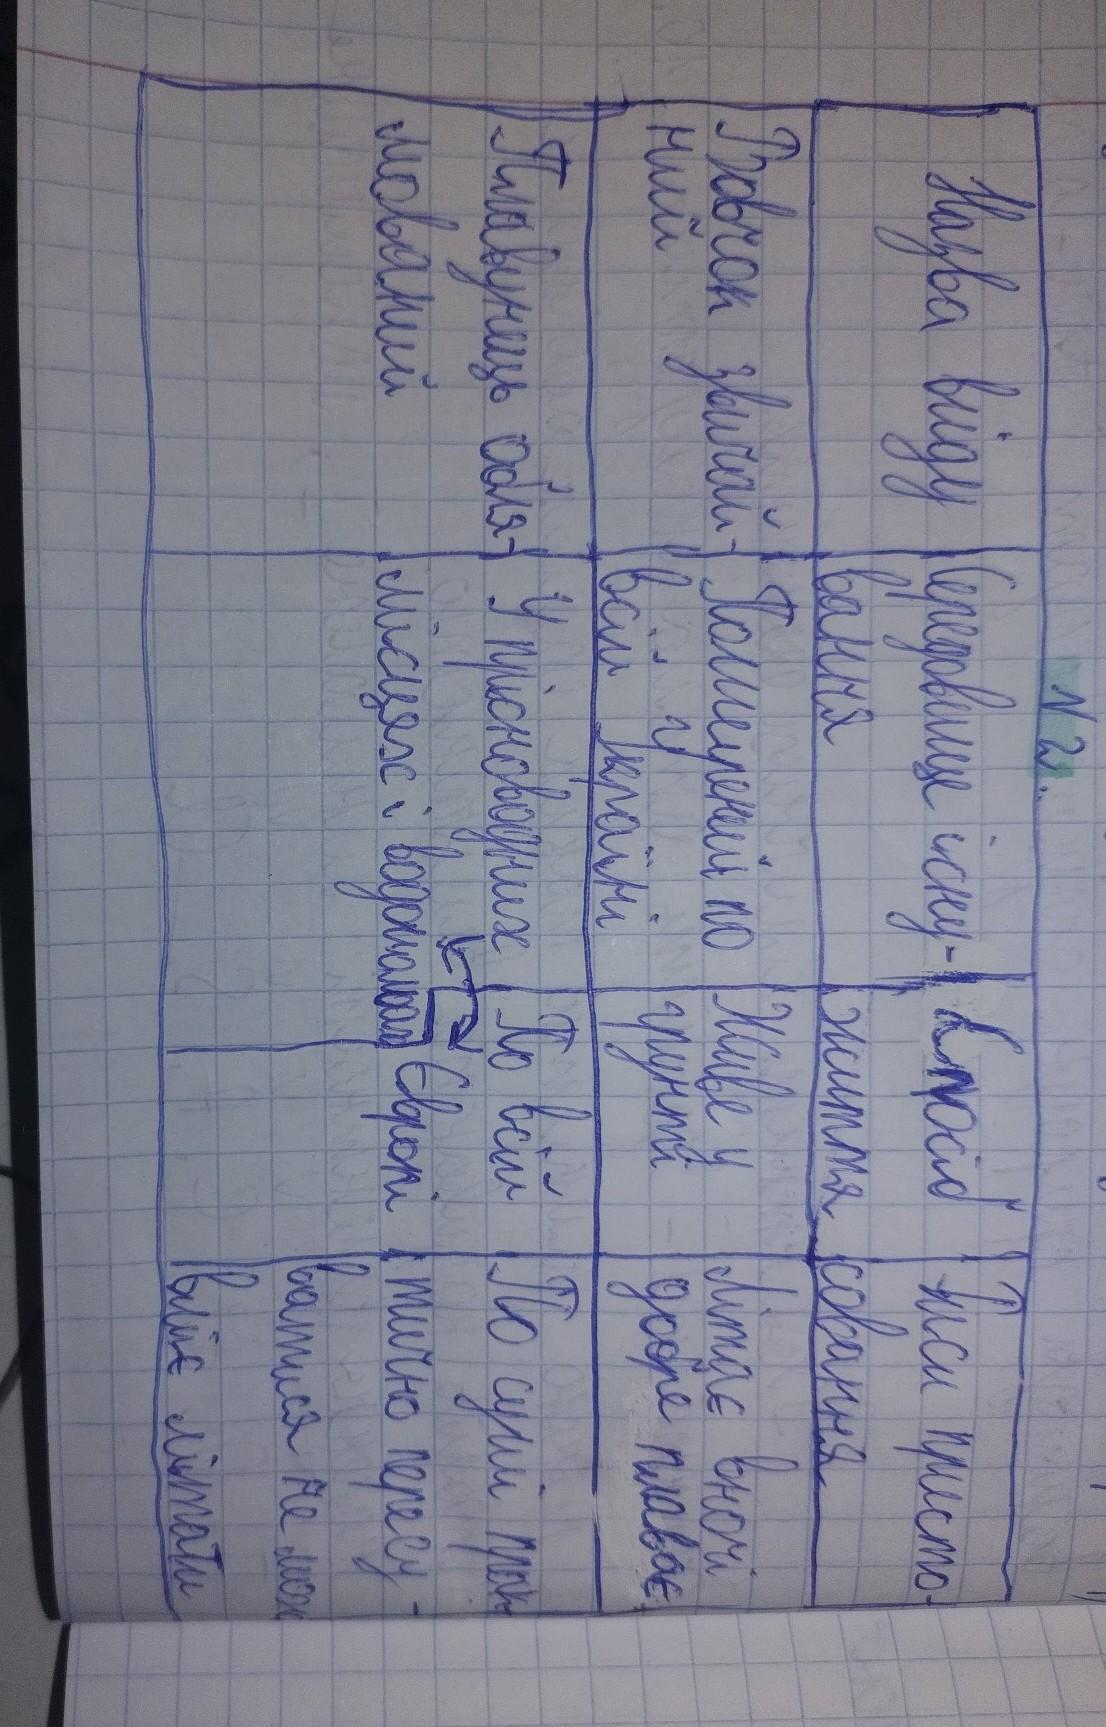 N 2.
Назва виду
Середовище існу-
вання
Спосіб
життя
Риси присто-
сування
Вовчок звичай-
ний
Поширений по
всій україні
Живе у
грунті
Літає вночі
добре плаває
Плавунець обля-
мований
У прісноводних
місцях і водоймах
По всій
Європі
По суші прак
тично пересу-
ватися не мож
вміє літати